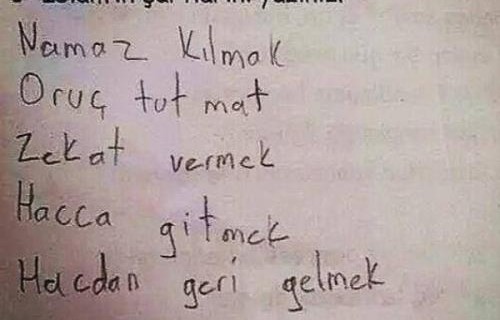 Namaz Kılmak
Oruç tutmat
Zekat vermek
Hacca gitmek
Hacdan geri gelmek